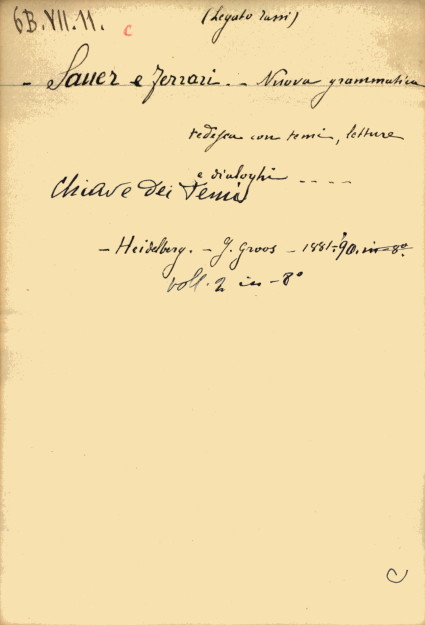 6B.VII.11. c (Legato Tassi)
- Sauer e Ferrari. - Nuova grammatica
tedesca con temi, letture
e dialoghi - - - -
Chiave dei Temi
- Heidelberg. - J. Groos - 1881-'90. in-8º.
voll. 2 in-8º